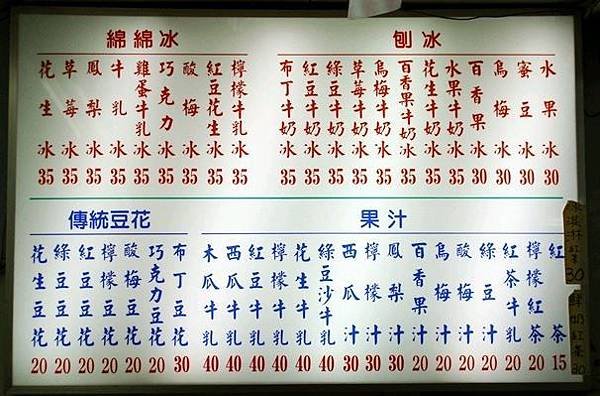 綿綿冰
花生冰 35
草莓冰 35
鳳梨冰 35
牛乳冰 35
雞蛋牛乳冰 35
巧克力冰 35
酸梅冰 35
紅豆花生冰 35
檸檬牛乳冰 35
刨冰
布丁牛奶冰 35
紅豆牛奶冰 35
綠豆牛奶冰 35
草莓牛奶冰 35
烏梅牛奶冰 35
百香果牛奶冰 35
花生牛奶冰 35
水果牛奶冰 35
百香果冰 30
烏梅冰 30
蜜豆冰 30
水果冰 30
傳統豆花
花生豆花 20
綠豆豆花 20
紅豆豆花 20
檸檬豆花 20
酸梅豆花 20
巧克力豆花 20
布丁豆花 30
果汁
木瓜牛乳 40
西瓜牛乳 40
紅豆牛乳 40
檸檬牛乳 40
花生牛乳 40
綠豆沙牛乳 40
西瓜汁 30
檸檬汁 30
鳳梨汁 30
百香果汁 20
烏梅汁 20
酸梅汁 20
綠豆汁 20
紅茶牛乳 20
檸檬紅茶 20
紅茶 15
鮮奶紅茶 30